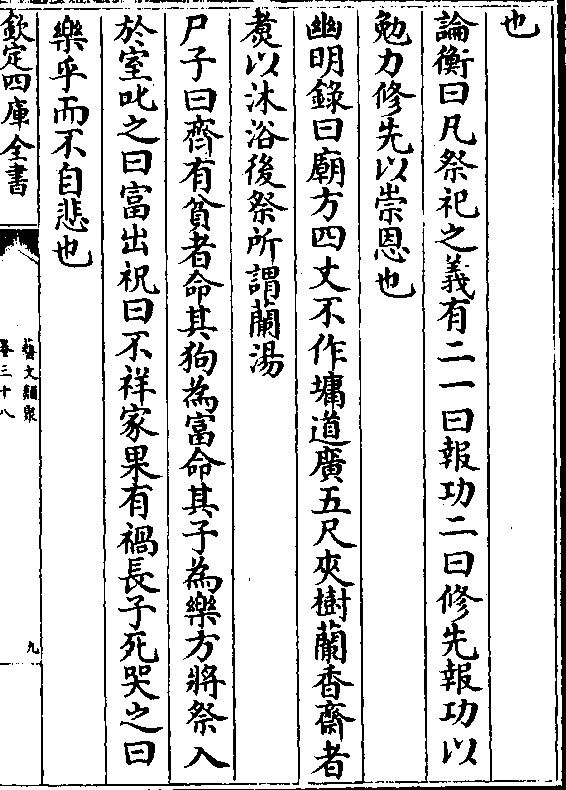 也
論衡曰凡祭祀之義有二一曰報功二曰修先報功以
勉力修先以崇恩也
幽明錄曰廟方四丈不作墉道廣五尺夾樹蘭香齋者
煑以沐浴後祭所謂蘭湯
尸子曰齊有貧者命其狗為富命其子為樂方將祭入
於室叱之曰富出祝曰不祥家果有禍長子死哭之曰
樂乎而不自悲也
欽定四庫全書
藝文類聚
卷三十八
九